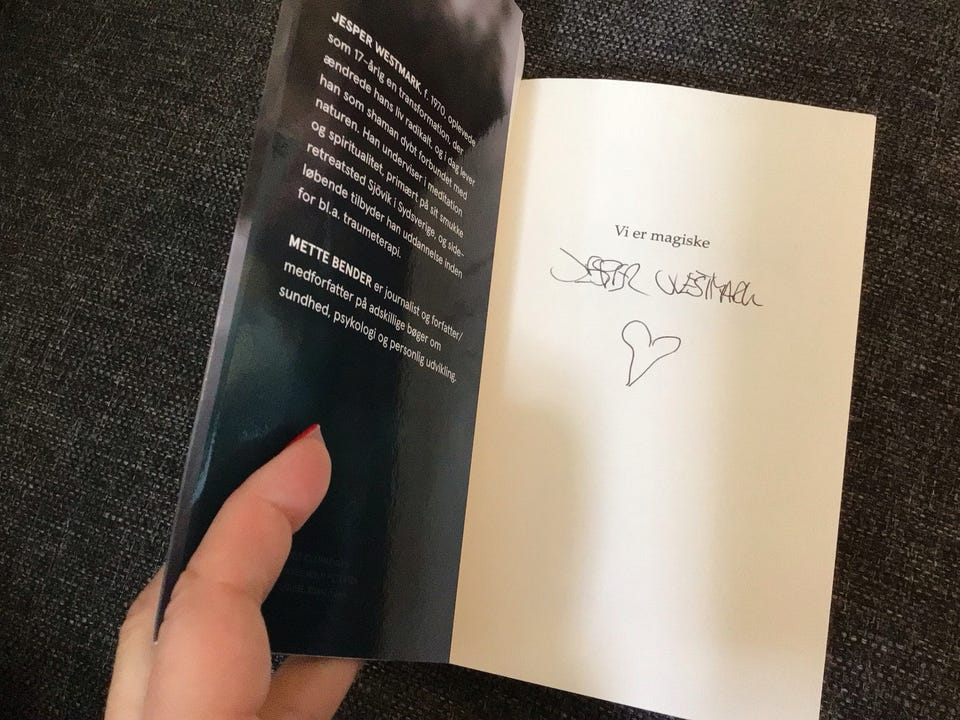 JESPER WESTMARK, f. 1970, oplevede
som 17-årig en transformation, der
ændrede hans liv radikalt, og i dag lever
han som shaman dybt forbundet med
naturen. Han underviser i meditation
og spiritualitet, primært på sit smukke
retreatsted Sjövik i Sydsverige, og side-
løbende tilbyder han uddannelse inden
for bl.a. traumeterapi.
METTE BENDER er journalist og forfatter/
medforfatter på adskillige bøger om
sundhed, psykologi og personlig udvikling.
Vi er magiske
JESPER WESTMARK